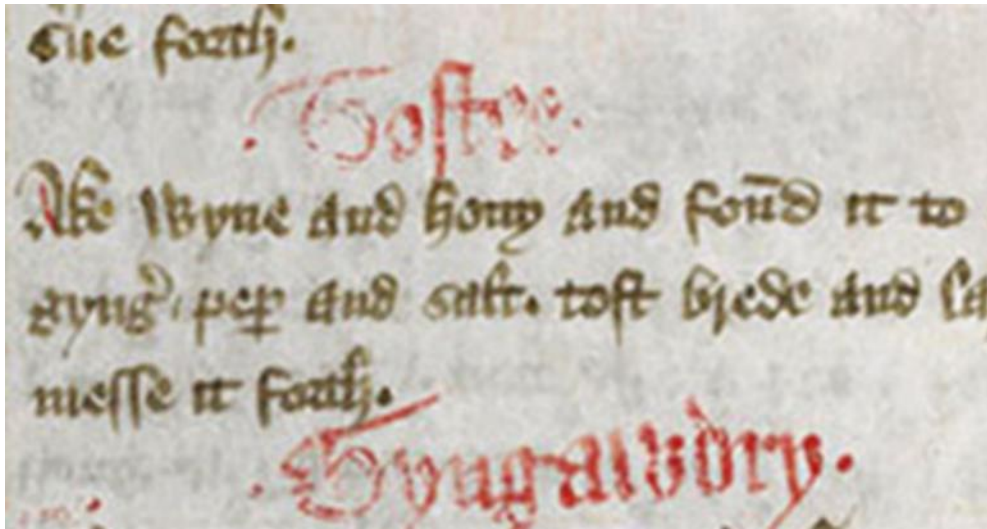 s͛ue forth.
Tostee.
Take wyne and hony and foūd it to
gyng͛ . pep and salt. tost brede and la
messe it forth.
Gyngawdry.